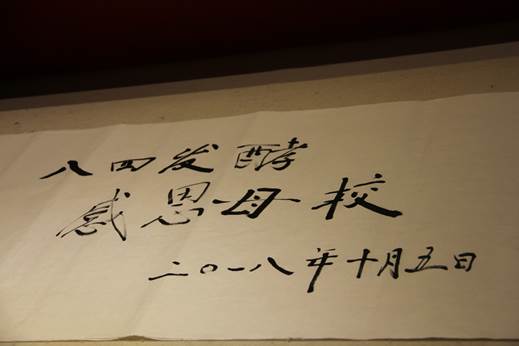 八四发酵
感恩母校
二〇一八年十月五日